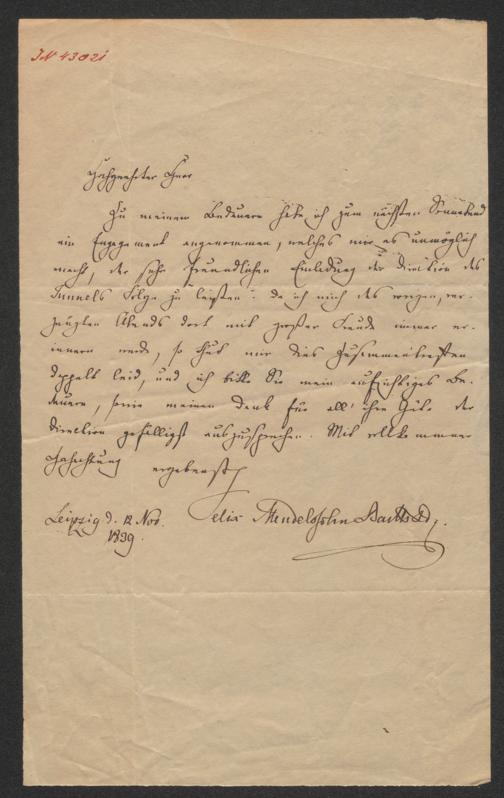 IN 43021
Hochgeehrter Herr
Zu meinem Bedauern habe ich zum nächsten Sonnabend
ein Engagement angenommen, welches mir es unmöglich
macht, der sehr freundlichen Einladung der Direction des
Tunnels Folge zu leisten. Da ich mich des vorigen, ver-
gnügten Abends dort mit großer Freude immer er-
innern werde, so thut mir dies Zusammentreffen
doppelt leid, und ich bitte Sie mein aufrichtiges Be-
dauern, sowie meinen Dank für all' ihre Güte der
Direction gefälligst auszusprechen. Mit vollkommener
Hochachtung ergebenst
Leipzig d. 12 Nov. Felix Mendelssohn Bartholdy.
1839.